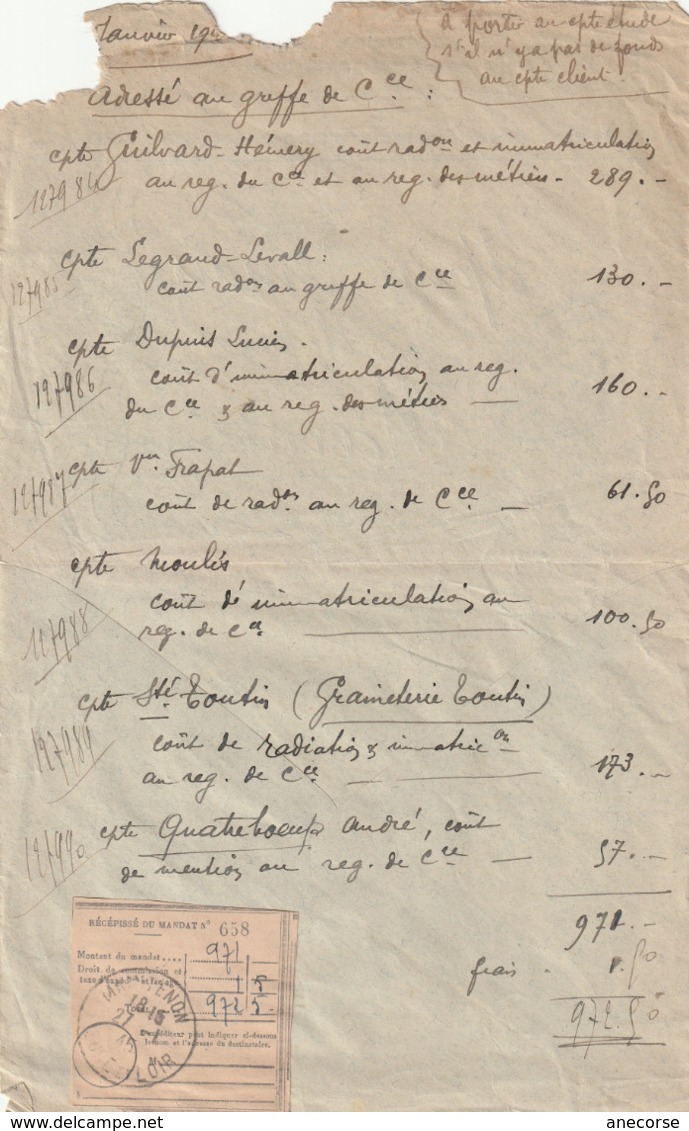 Janvier 19
à porter au cpte étude
s'il n'y a pas de fonds
au cpte client.
Adressé au greffe de Cce :
cpte Guilvard-Hémery coût radon et immatriculation
127984
au reg. du Cce et au reg. des métiers - 289.-
cpte Legrand-Levall :
127985
coût radon au greffe de Cce 130.-
cpte Dupuis Lucien.
127986
coût d'immatriculation au reg.
du Cce & au reg. des métiers — 160.-
cpte Vve Frapat
127987
coût de radon au reg. de Cce — 61.50
cpte Moulis
127988
coût d'immatriculation au
reg. de Cce 100.50
cpte Sté Toutin (Graineterie Toutin)
127989
coût de radiation & immatricon
au reg. de Cce 173.-
127990
cpte Quatreboeufs André, coût
de mention au reg. de Cce — 57.-
971.-
frais . 1.50
972.50
RÉCÉPISSÉ DU MANDAT N° 658
Montant du mandat.... 971
Droit de commission et
1 5
972 5-
MAINTENON
18-15
L'expéditeur peut indiquer ci-dessous
le nom et l'adresse du destinataire.
M
LOIR
delcampe.net
anecorse